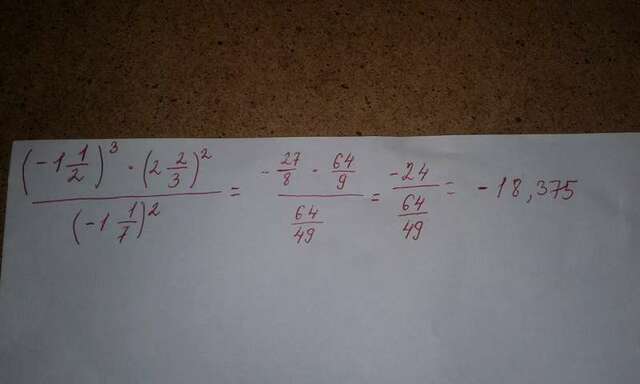 (-1 1/2)^3 · (2 2/3)^2 / (-1 1/7)^2 = -27/8 · 64/9 / 64/49 = -24 / 64/49 = -18,375